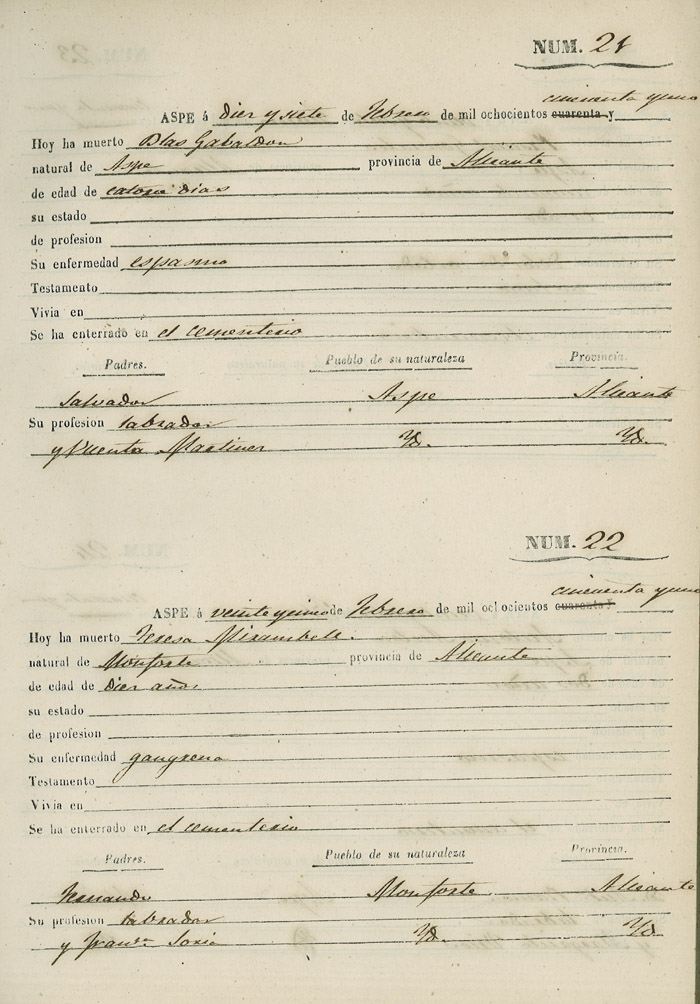 NUM. 21
cincuenta y uno
ASPE á diez y siete de Febrero de mil ochocientos cuarenta y
Hoy ha muerto Blas Gabaldon
natural de Aspe provincia de Alicante
de edad de catorce dias
su estado
de profesion
Su enfermedad espasmo
Testamento
Vivia en
Se ha enterrado en el cementerio
Padres. Pueblo de su naturaleza Provincia.
Salvador Aspe Alicante
Su profesion labrador
y Vicenta Martinez Yd. Yd.
NUM. 22
cincuenta y uno
ASPE á veinte y uno de Febrero de mil ochocientos cuarenta y
Hoy ha muerto Teresa Mirambell
natural de Monforte provincia de Alicante
de edad de diez años
su estado
de profesion
Su enfermedad gangrena
Testamento
Vivia en
Se ha enterrado en el cementerio
Padres. Pueblo de su naturaleza Provincia.
Fernando Monforte Alicante
Su profesion labrador
y Franca Soria Yd. Yd.